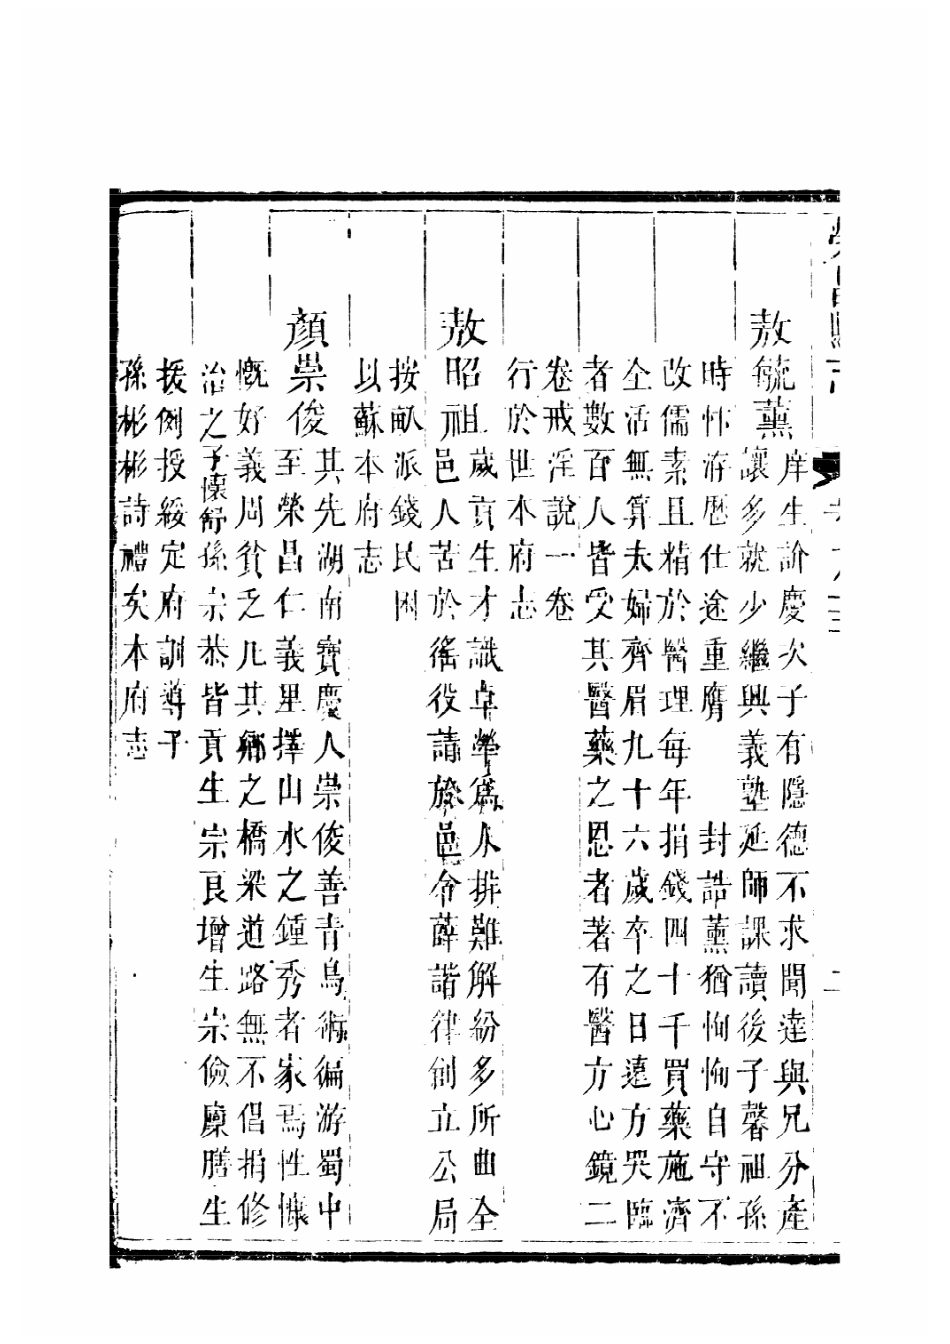 榮昌縣志 卷十八 二
敖毓薰庠生訓慶次子有隱德不求聞達與兄分產
讓多就少繼興義塾延師課讀後子馨祖孫
時忭游歷仕途重膺 封誥薰猶恂恂自守不
改儒素且精於醫理每年捐錢四十千買藥施濟
全活無算夫婦齊眉九十六歲卒之日遠方哭臨
者數百人皆受其醫藥之恩者著有醫方心鏡二
卷戒淫說一卷
行於世本府志
敖昭祖歲貢生才識卓犖為人排難解紛多所曲全
邑人苦於徭役請於邑令薛諧律創立公局
按畝派錢民困
以蘇本府志
顏崇俊其先湖南寶慶人崇俊善青烏術徧游蜀中
至榮昌仁義里擇山水之鍾秀者家焉性慷
慨好義周貧乏凡其鄉之橋梁道路無不倡捐修
治之子懷舒孫宗恭皆貢生宗良增生宗儉廩膳生
援例授綏定府訓導子
孫彬彬詩禮矣本府志